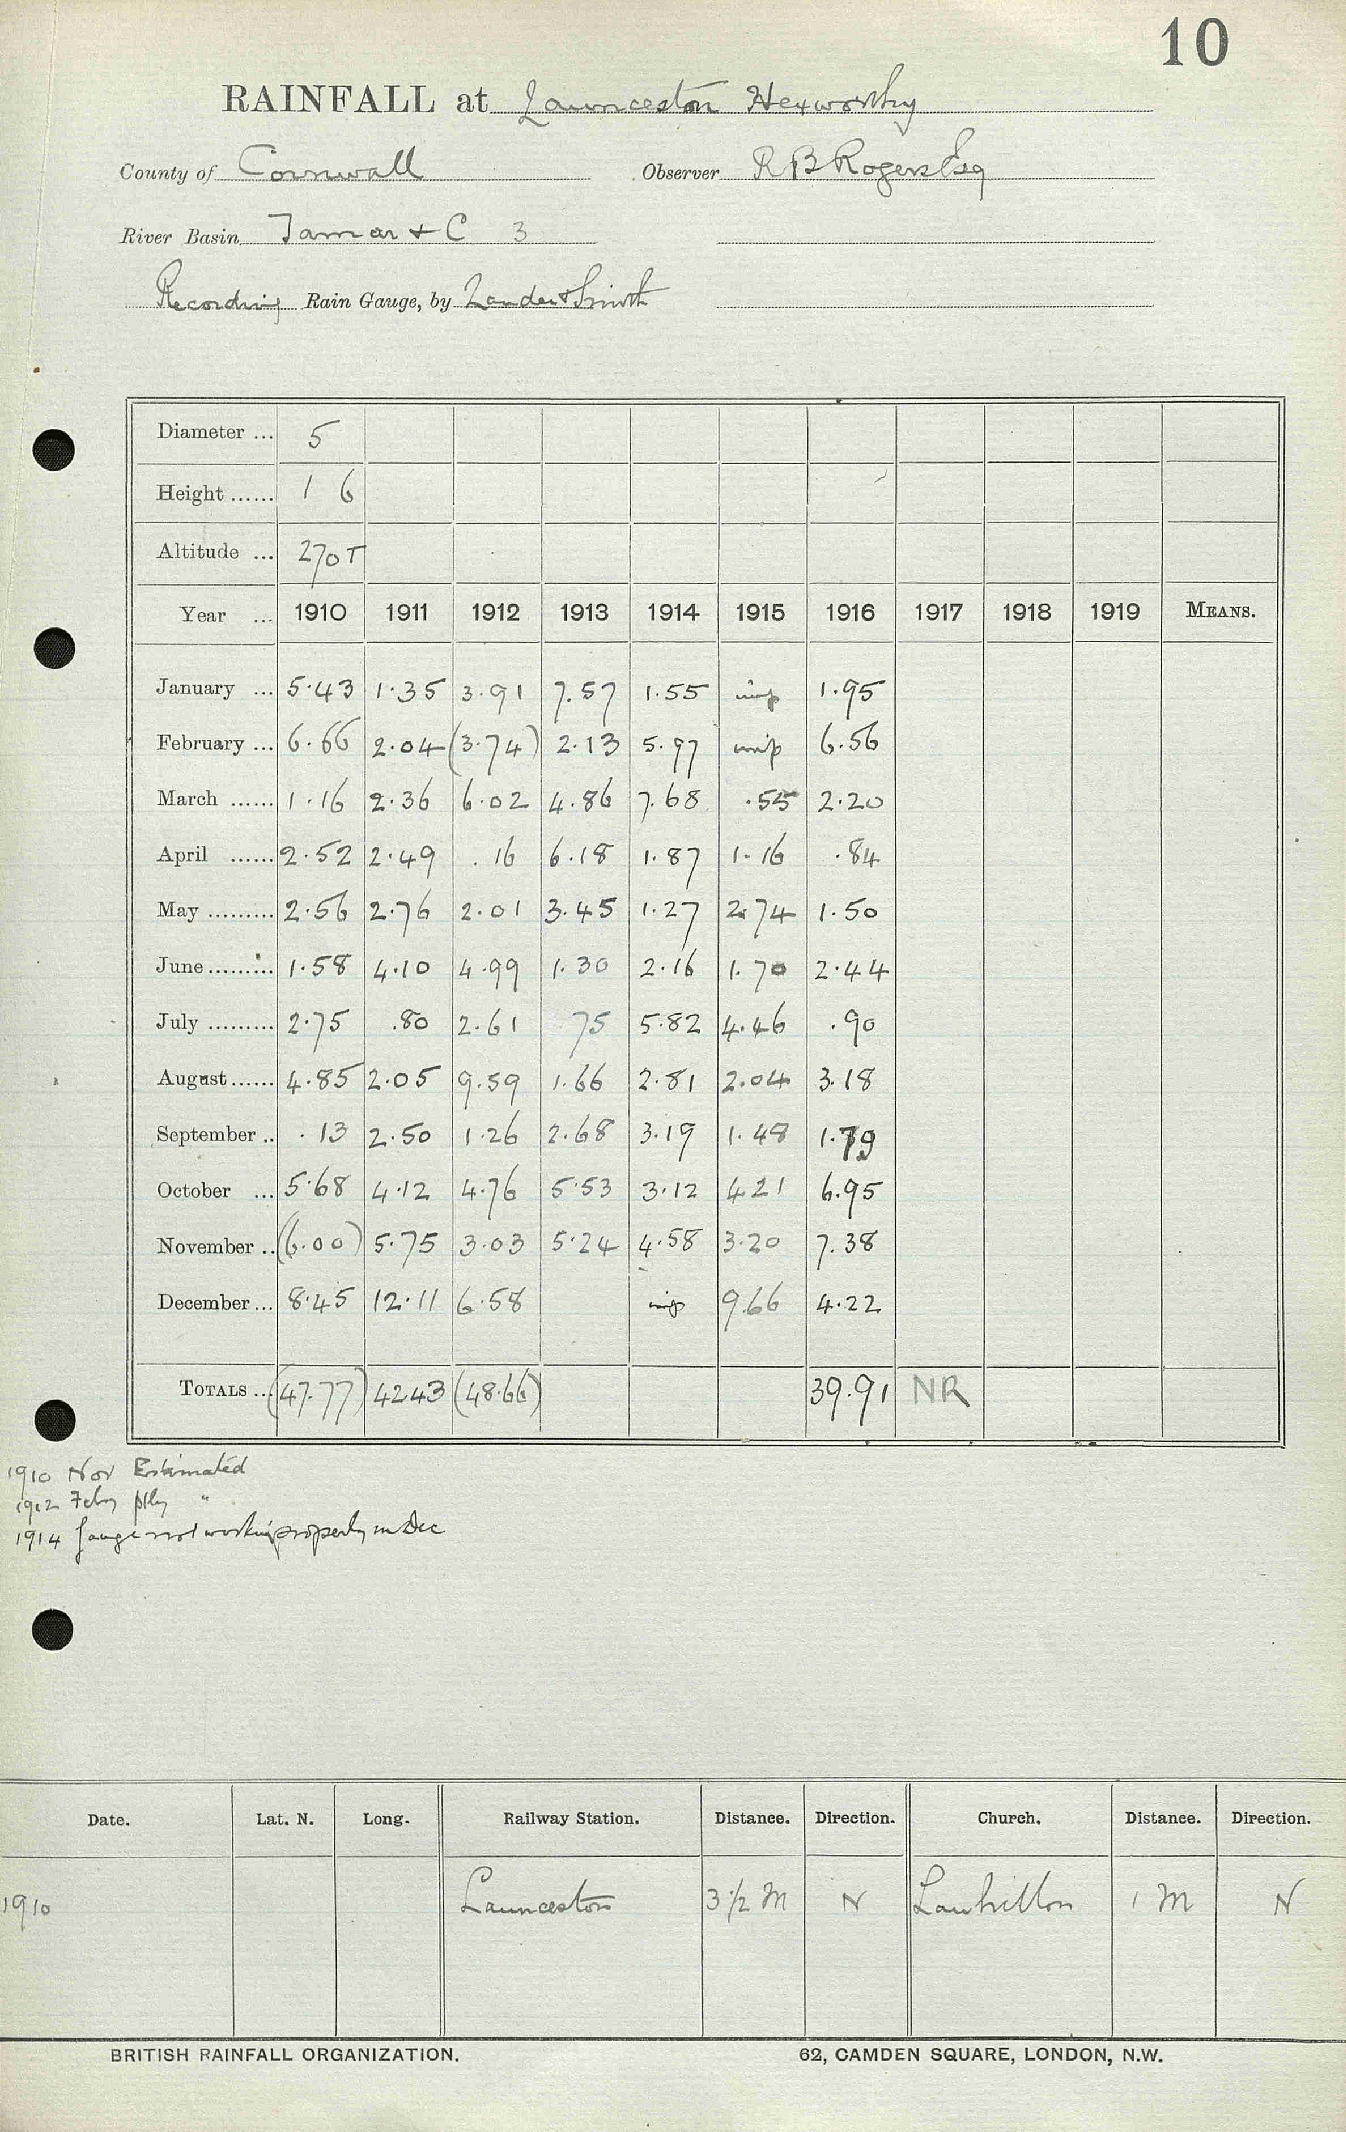 10
RAINFALL at Launceston Hexworthy
County of Cornwall Observer R B Rogers Esq
River Basin Tamar & C 3
Recording Rain Gauge, by Lander & Smith
Diameter ... 5
Height ...... 1 6
Altitude ... 270 T
Year ... 1910 1911 1912 1913 1914 1915 1916 1917 1918 1919 MEANS.
January ... 5.43 1.35 3.91 7.57 1.55 imp 1.95
February ... 6.66 2.04 (3.74) 2.13 5.97 imp 6.56
March ...... 1.16 2.36 6.02 4.86 7.68 .55 2.20
April ...... 2.52 2.49 .16 6.18 1.87 1.16 .84
May ......... 2.56 2.76 2.01 3.45 1.27 2.74 1.50
June ......... 1.58 4.10 4.99 1.30 2.16 1.70 2.44
July ......... 2.75 .80 2.61 75 5.82 4.46 .90
August ...... 4.85 2.05 9.59 1.66 2.81 2.04 3.18
September .. .13 2.50 1.26 2.68 3.19 1.48 1.79
October ... 5.68 4.12 4.76 5.53 3.12 421 6.95
November .. (6.00) 5.75 3.03 5.24 4.58 3.20 7.38
December ... 8.45 12.11 6.58 imp 9.66 4.22
TOTALS ... (47.77) 4243 (48.66) 39.91 NR
1910 Nov Estimated
1912 Feby ptly "
1914 Gauge not working properly in Dec
Date. Lat. N. Long. Railway Station. Distance. Direction. Church. Distance. Direction.
1910 Launceston 3 1/2 M N Lawhitton 1 M N
BRITISH RAINFALL ORGANIZATION. 62, CAMDEN SQUARE, LONDON, N.W.